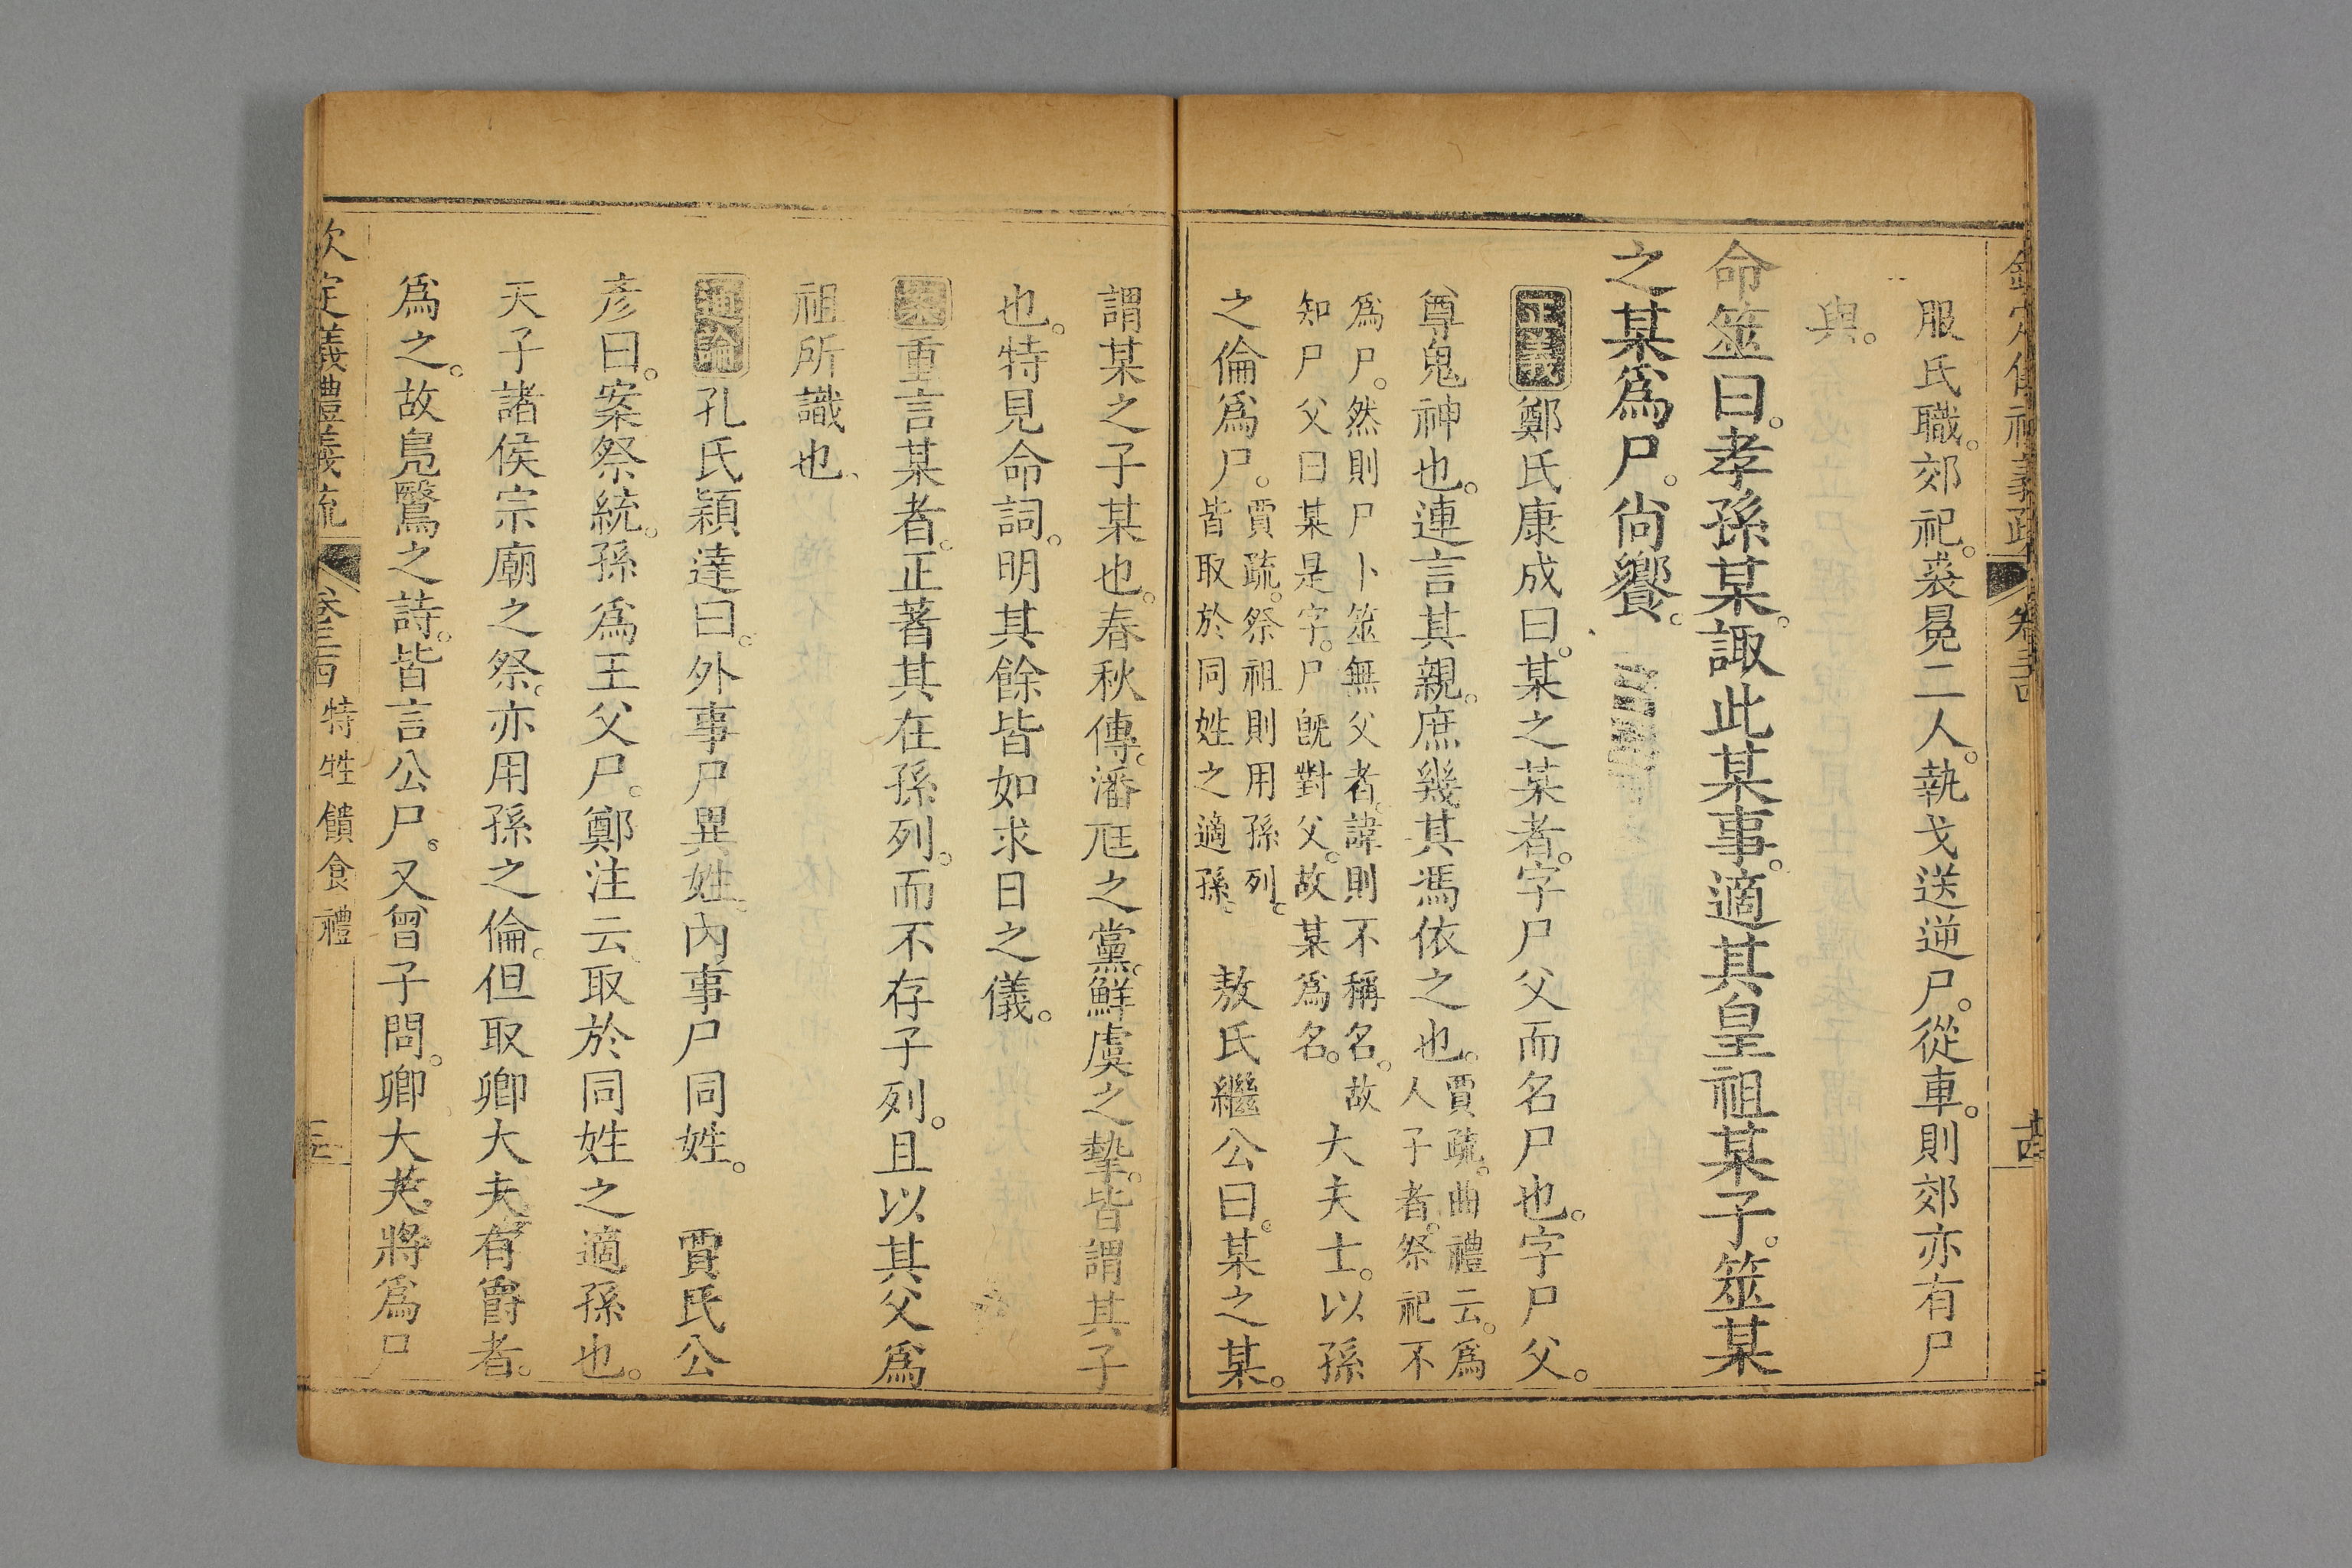 服氏職。郊祀。裘冕二人。執戈送逆尸。從車。則郊亦有尸
與。
命筮曰。孝孫某。諏此某事。適其皇祖某子。筮某
之某爲尸。尙饗。
正義鄭氏康成曰。某之某者。字尸父而名尸也。字尸父。
尊鬼神也。連言其親。庶幾其馮依之也。賈疏。曲禮云。爲
人子者。祭祀不
爲尸。然則尸卜筮無父者。諱則不稱名。故
知尸父曰某是字。尸旣對父。故某爲名。大夫士。以孫
之倫爲尸。賈疏。祭祖則用孫列。
皆取於同姓之適孫。敖氏繼公曰。某之某。
謂某之子某也。春秋傳。潘尫之黨。鮮虞之摯。皆謂其子
也。特見命詞。明其餘皆如求日之儀。
案重言某者。正著其在孫列。而不存子列。且以其父爲
祖所識也、
通論孔氏穎達曰。外事尸異姓。內事尸同姓。 賈氏公
彥曰。案祭統。孫爲王父尸。鄭注云。取於同姓之適孫也。
天子諸侯宗廟之祭。亦用孫之倫。但取卿大夫有爵者。
爲之。故鳧鷖之詩。皆言公尸。又曾子問。卿大夫。將爲尸
欽定儀禮義疏 卷三十四 特牲饋食禮